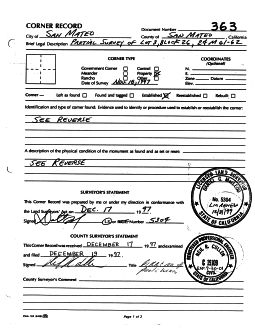 CORNER RECORD
Document Number 363
City of SAN MATEO County of SAN MATEO, California
Brief Legal Description PARTIAL SURVEY OF LOT 8, BLOCK 26, 2 M 61-62
CORNER TYPE
COORDINATES
(Optional)
Government Corner Control
Meander Property
Rancho Other
Date of Survey NOV. 18, 1997
N.
E.
Zone Datum
Elev.
Corner - Left as found Found and tagged Established Reestablished Rebuilt
Identification and type of corner found: Evidence used to identify or procedure used to establish or reestablish the corner:
SEE REVERSE
A description of the physical condition of the monument as found and as set or reset:
SEE REVERSE
SURVEYOR'S STATEMENT
This Corner Record was prepared by me or under my direction in conformance with
the Land Surveyors' Act on DEC. 17 1997
Signed 5304
LICENSED LAND SURVEYOR
STATE OF CALIFORNIA
COUNTY SURVEYOR'S STATEMENT
This Corner Record was received DECEMBER 17 1997 and examined
and filed DECEMBER 19 1997
Signed Title
REGISTERED PROFESSIONAL ENGINEER
STATE OF CALIFORNIA
County Surveyor's Comment
Page 1 of 2